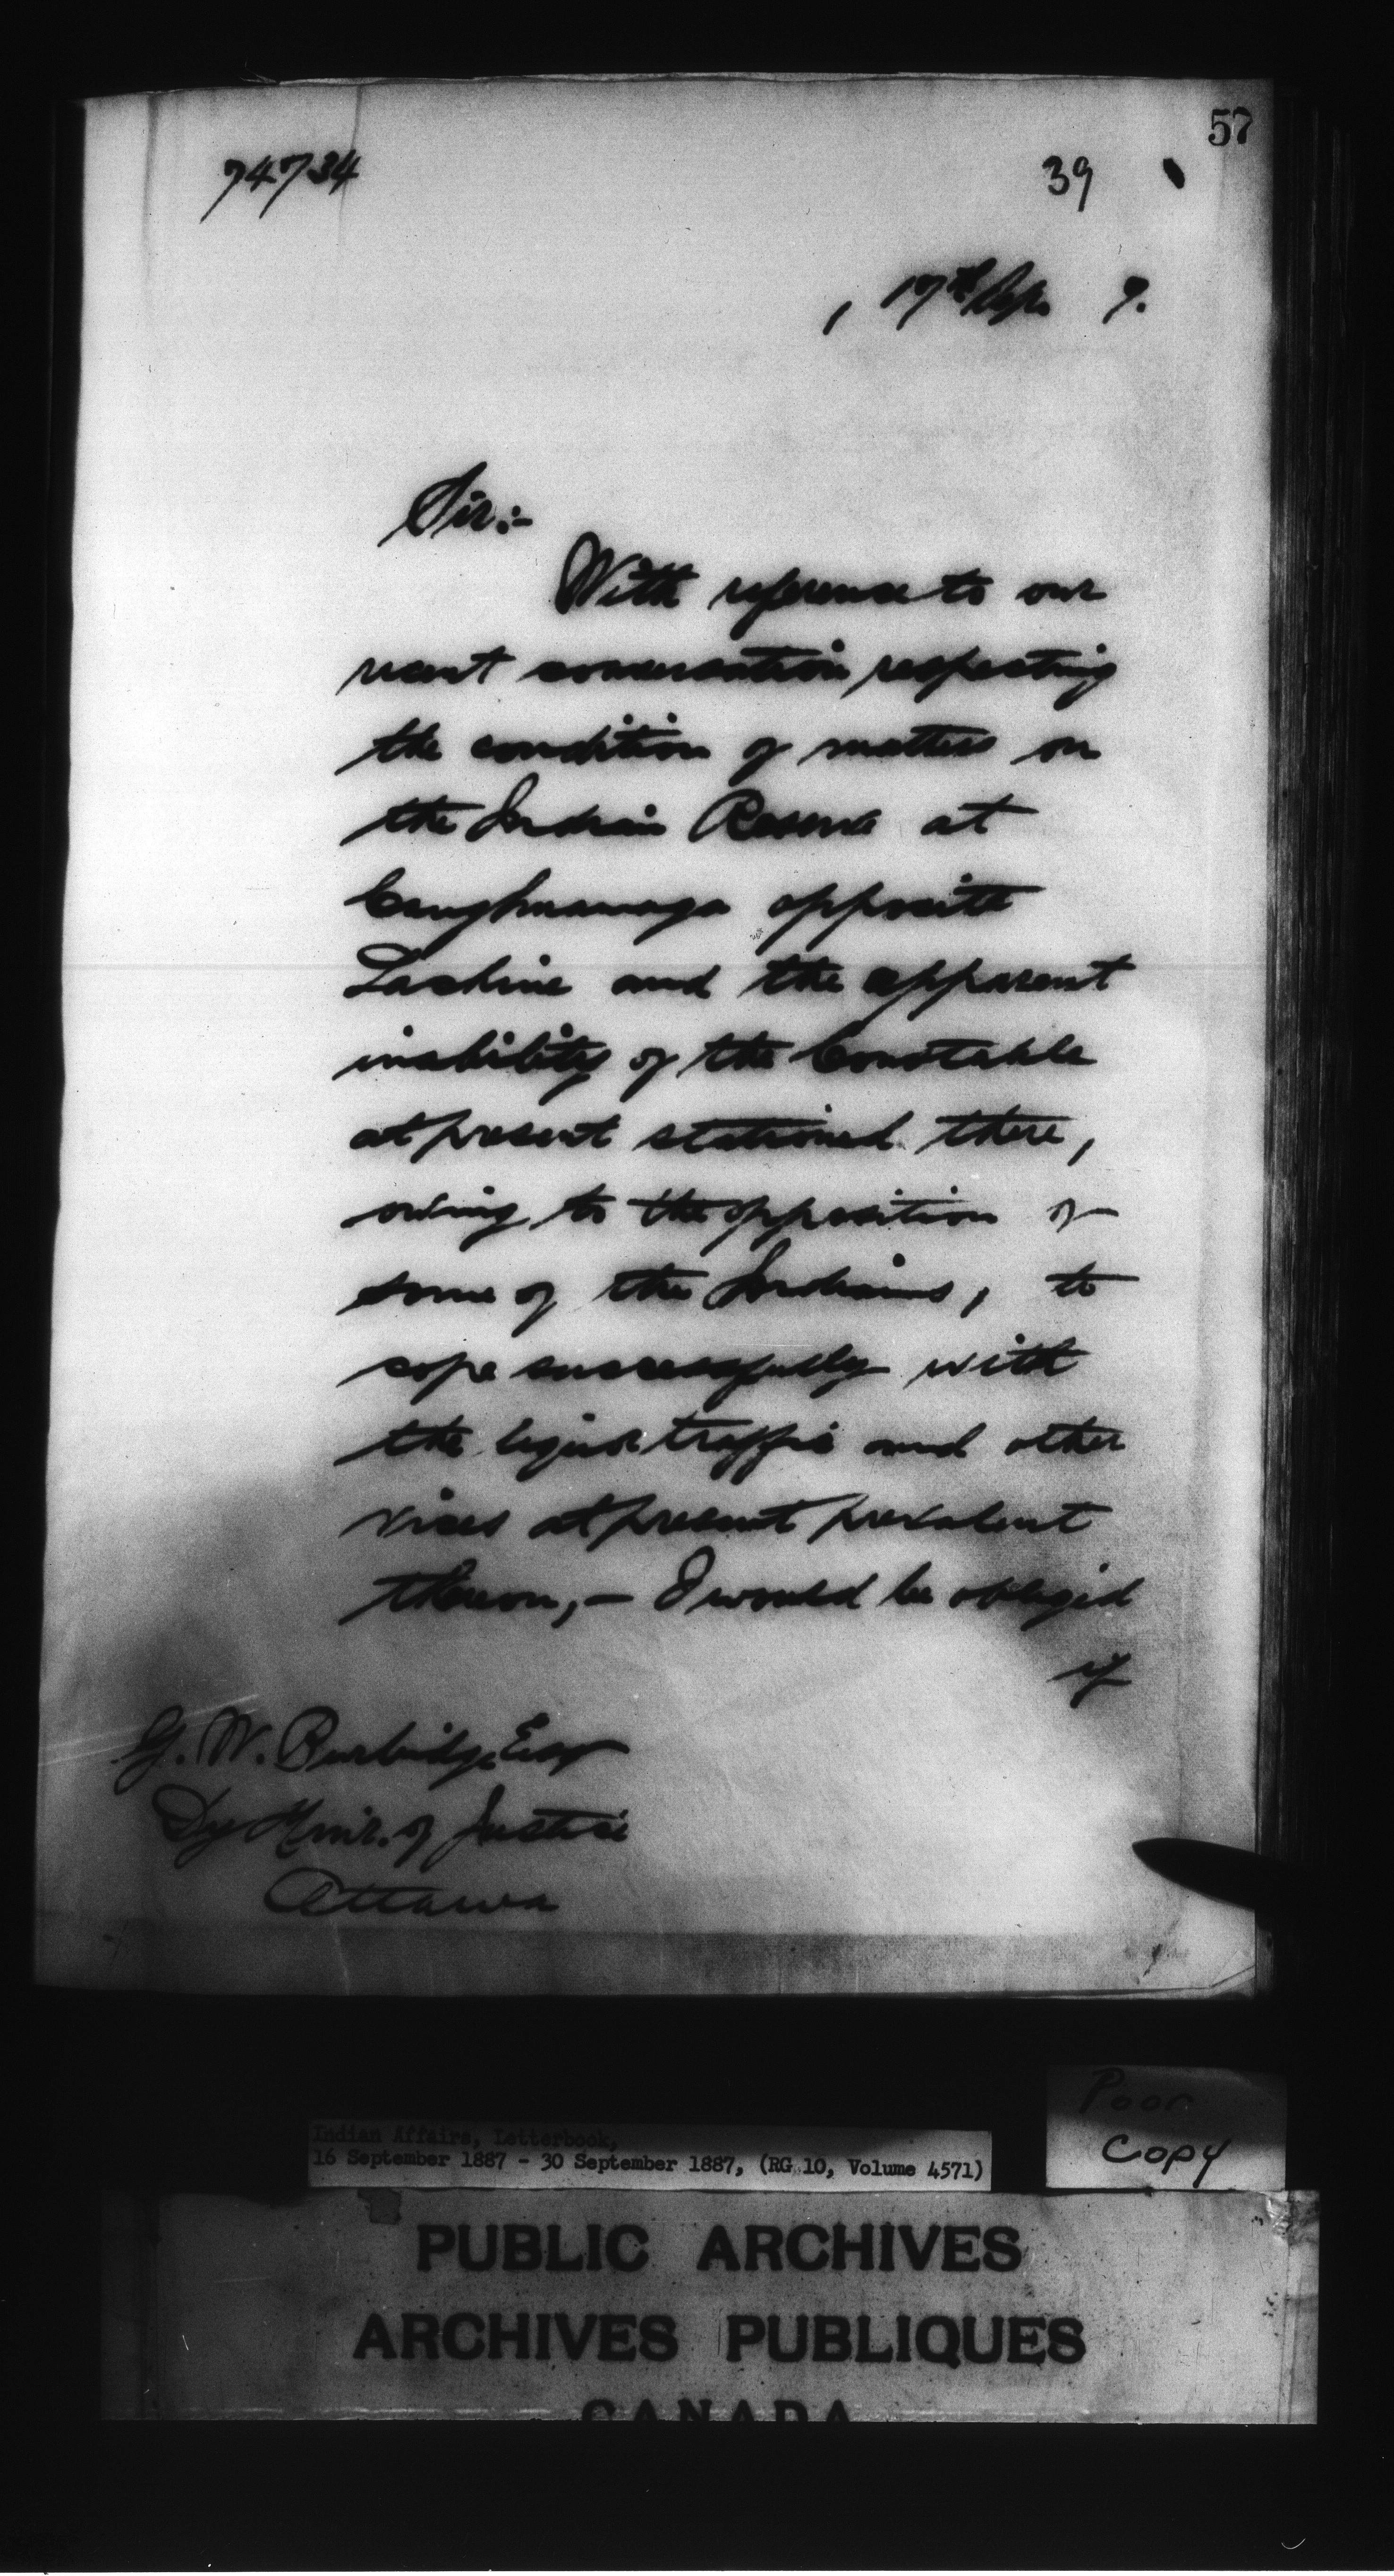 57
74734
39
, 17th Sep. 7.
Sir:-
With reference to our
recent conversation respecting
the condition of matters on
the Indian Reserve at
Caughnawaga opposite
Lachine and the apparent
inability of the Constable
at present stationed there,
owing to the opposition of
some of the Indians, to
cope successfully with
the liquor traffic and other
vices at present prevalent
thereon,- I would be obliged
if
G. W. Burbidge, Esq
Dy Minr. of Justice
Ottawa
Poor
Copy
Indian Affairs, Letterbook,
16 September 1887 - 30 September 1887, (RG 10, Volume 4571)
PUBLIC ARCHIVES
ARCHIVES PUBLIQUES
CANADA